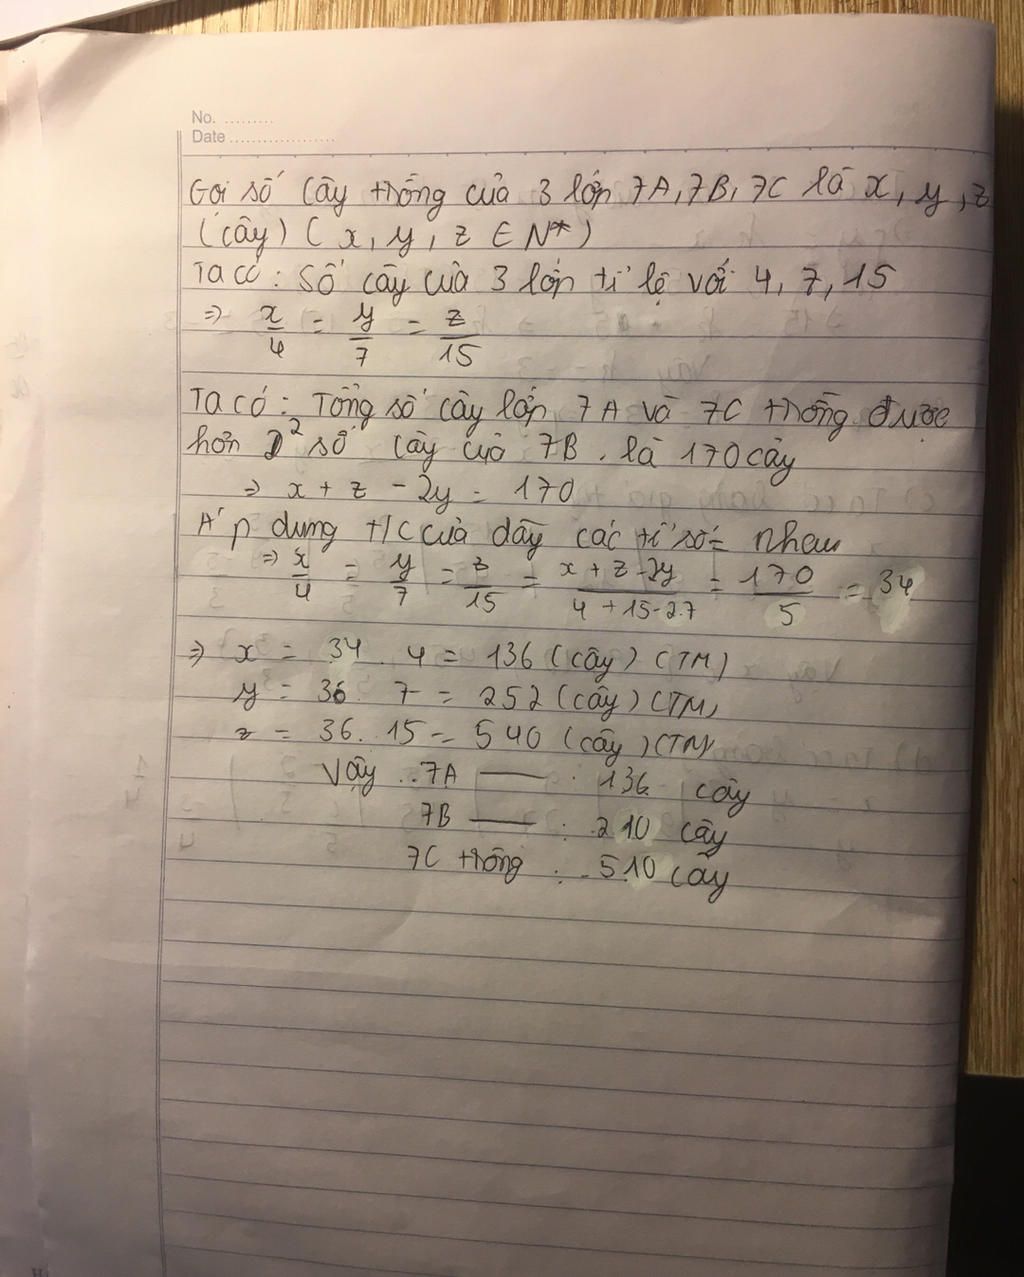 No. .........
Date ...................
Gọi số cây trồng của 3 lớp 7A, 7B, 7C là x, y, z
(cây) ( x, y, z ∈ N*)
Ta có : Số cây của 3 lớp tỉ lệ với 4, 7, 15
⇒ x/4 = y/7 = z/15
Ta có : Tổng số cây lớp 7A và 7C trồng được
hơn 2 số cây của 7B . là 170 cây
⇒ x + z - 2y = 170
Áp dụng t/c của dãy các tỉ số = nhau
⇒ x/4 = y/7 = z/15 = (x + z - 2y)/(4 + 15 - 2.7) = 170/5 = 34
⇒ x = 34 . 4 = 136 (cây) (TM)
y = 36 . 7 = 252 (cây) (TM)
z = 36 . 15 = 540 (cây) (TM)
Vậy : 7A —— : 136 cây
7B —— : 210 cây
7C trồng : 510 cây